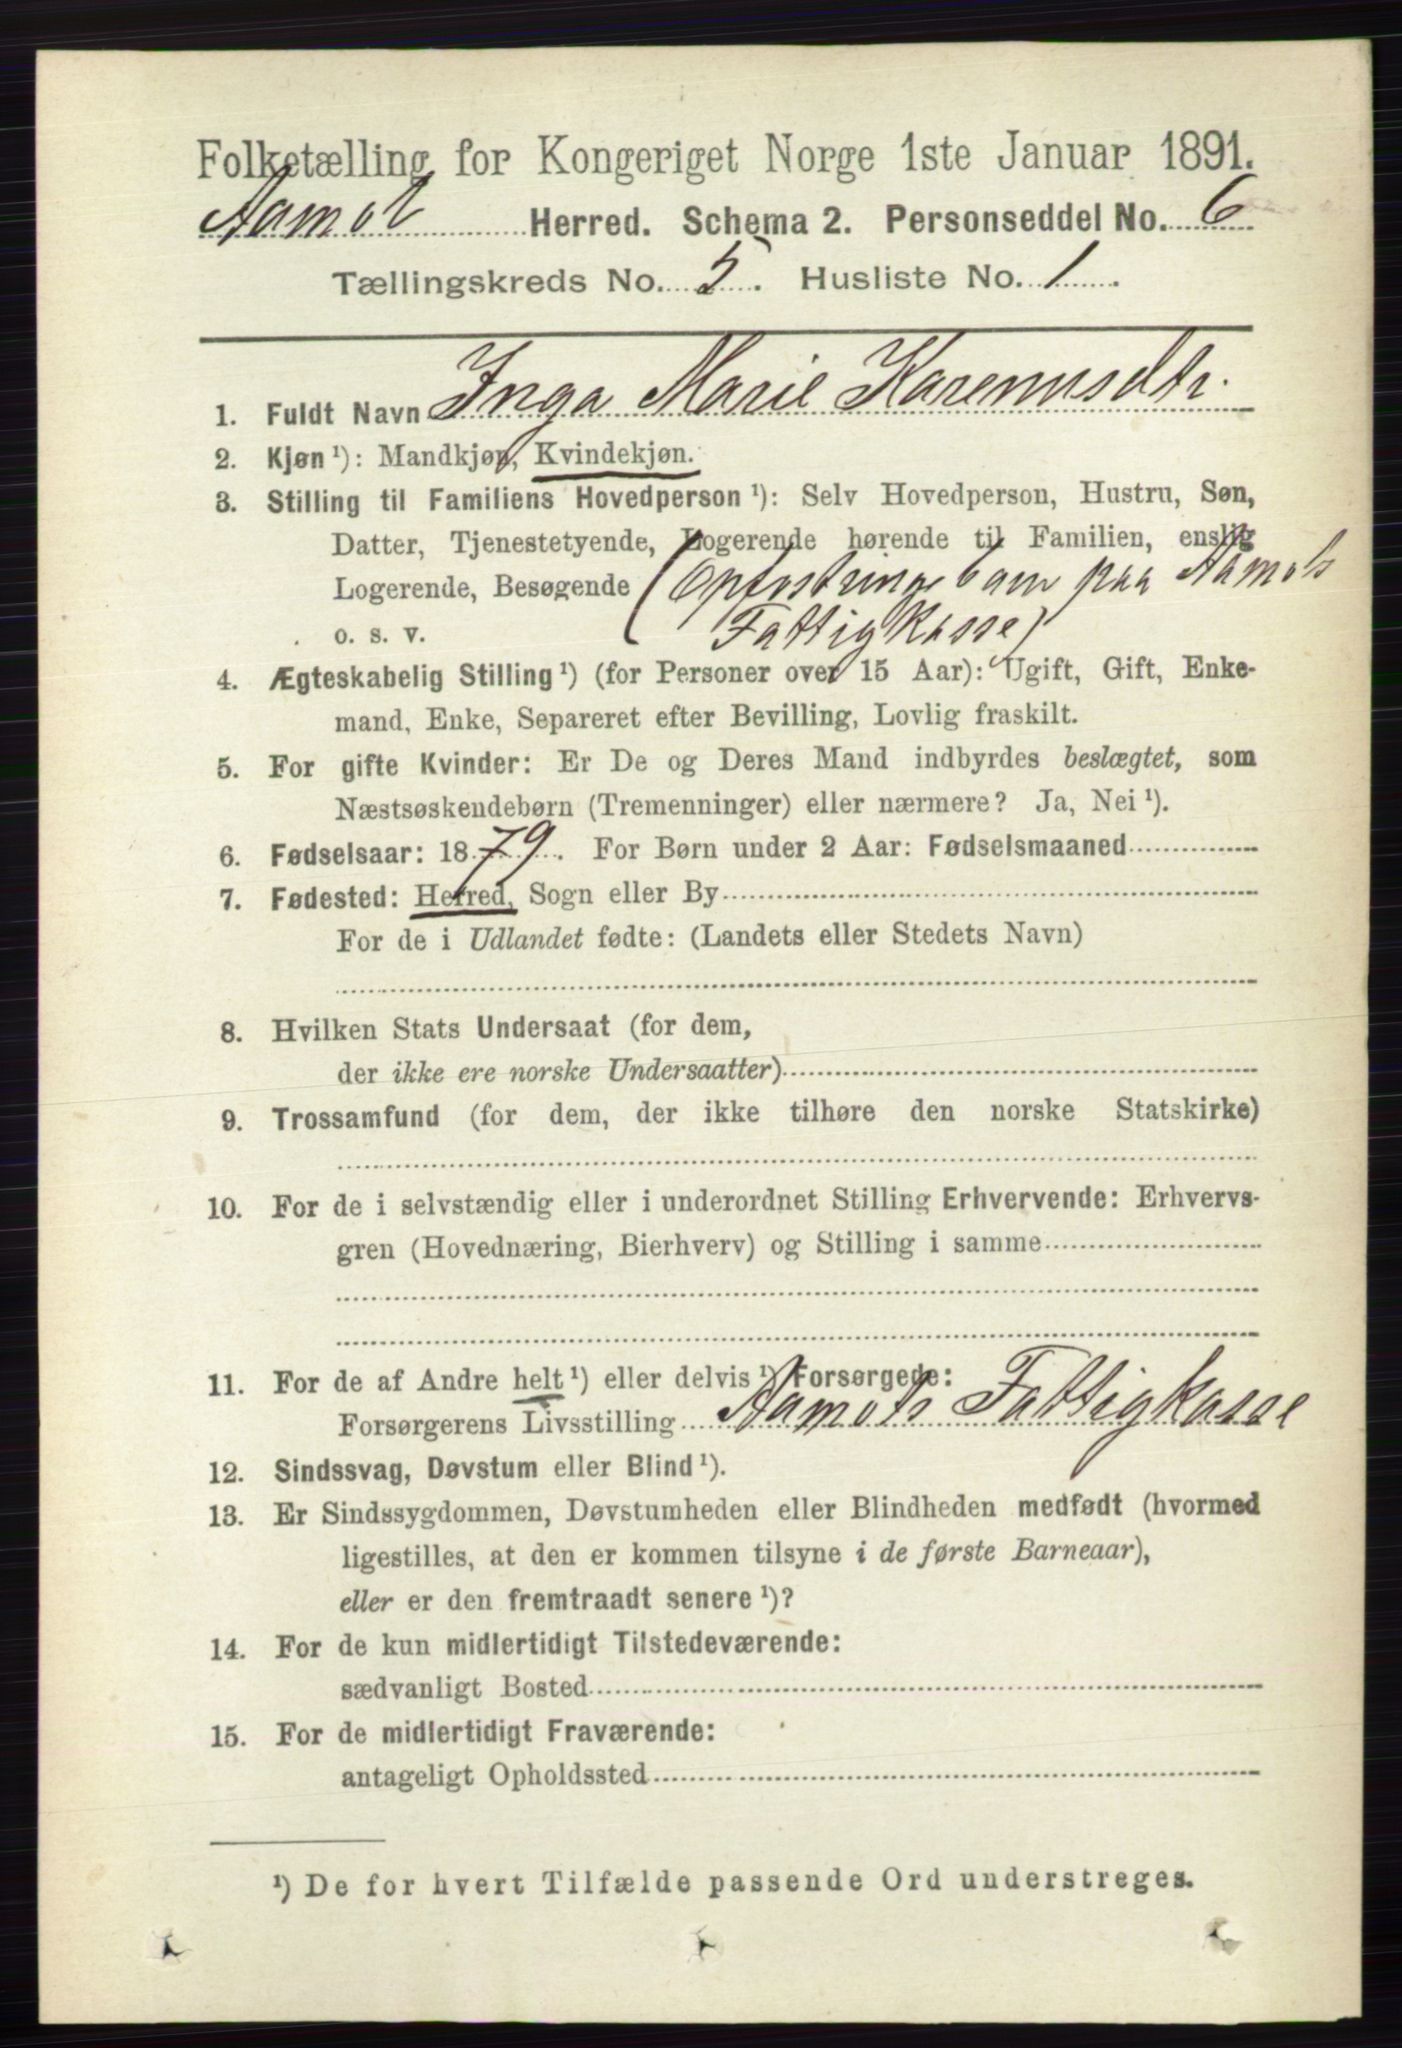 Folketælling for Kongeriget Norge 1ste Januar 1891.
Aamot Herred. Schema 2. Personseddel No. 6
Tællingskreds No. 5. Husliste No. 1.
1. Fuldt Navn Inga Marie Karenusdtr.
2. Kjøn ¹): Mandkjøn, Kvindekjøn.
3. Stilling til Familiens Hovedperson ¹): Selv Hovedperson, Hustru, Søn,
Datter, Tjenestetyende, Logerende hørende til Familien, enslig
Logerende, Besøgende (Opfostringsbarn paa Aamots
o. s. v. Fattigkasse)
4. Ægteskabelig Stilling ¹) (for Personer over 15 Aar): Ugift, Gift, Enke-
mand, Enke, Separeret efter Bevilling, Lovlig fraskilt.
5. For gifte Kvinder: Er De og Deres Mand indbyrdes beslægtet, som
Næstsøskendebørn (Tremenninger) eller nærmere? Ja, Nei ¹).
6. Fødselsaar: 1879. For Børn under 2 Aar: Fødselsmaaned
7. Fødested: Herred, Sogn eller By
For de i Udlandet fødte: (Landets eller Stedets Navn)
8. Hvilken Stats Undersaat (for dem,
der ikke ere norske Undersaatter)
9. Trossamfund (for dem, der ikke tilhøre den norske Statskirke)
10. For de i selvstændig eller i underordnet Stilling Erhvervende: Erhvervs-
gren (Hovednæring, Bierhverv) og Stilling i samme
11. For de af Andre helt ¹) eller delvis ¹) Forsørgede:
Forsørgerens Livsstilling Aamots Fattigkasse
12. Sindssvag, Døvstum eller Blind ¹).
13. Er Sindssygdommen, Døvstumheden eller Blindheden medfødt (hvormed
ligestilles, at den er kommen tilsyne i de første Barneaar),
eller er den fremtraadt senere ¹)?
14. For de kun midlertidigt Tilstedeværende:
sædvanligt Bosted
15. For de midlertidigt Fraværende:
antageligt Opholdssted
¹) De for hvert Tilfælde passende Ord understreges.